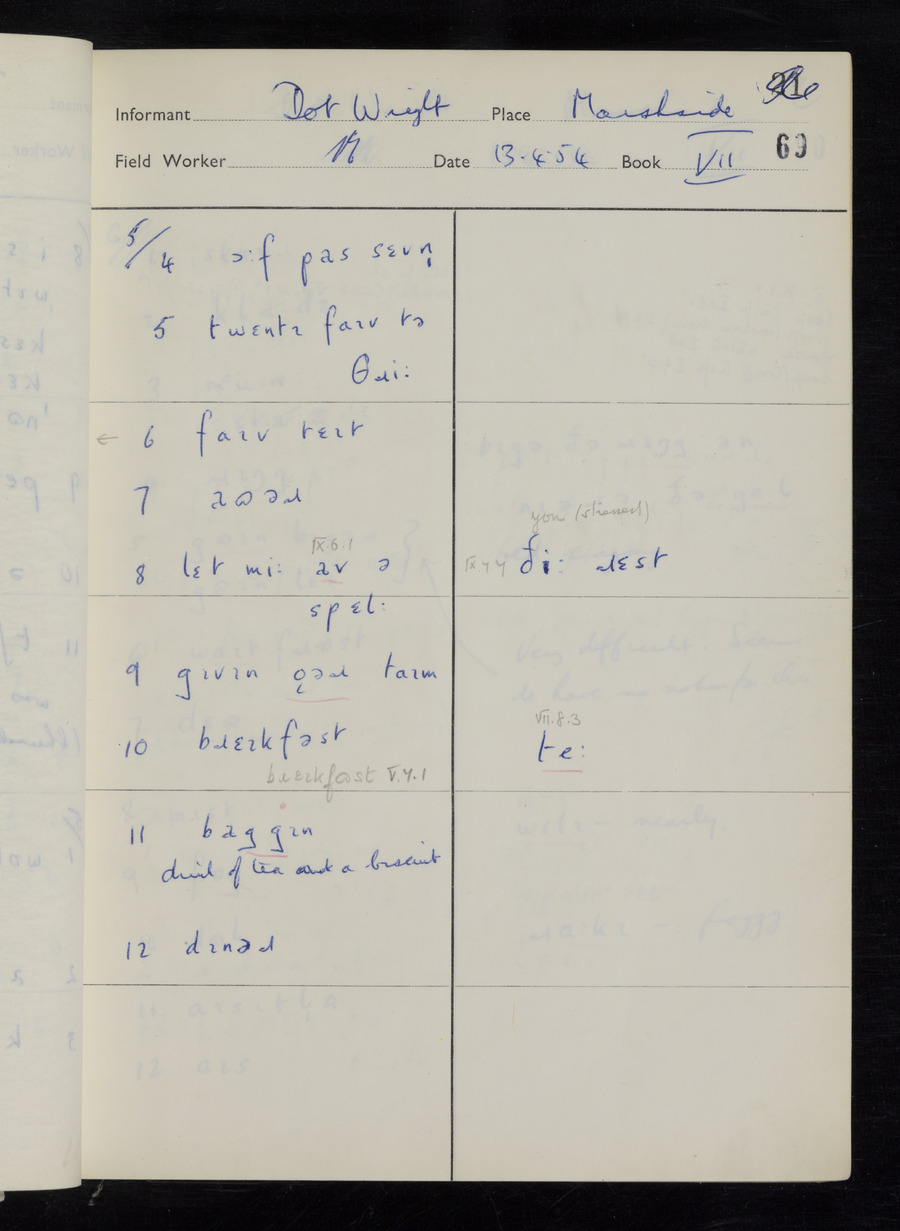 Informant Dot Wright Place Marshside
Field Worker Date 13.4.54 Book VII 69
5/4 ɔ:f pas sɛvn̩
5 twentɪ faɪv tə
θɹi:
← 6 faɪv tɛɪt
7 aʊəɹ
IX.6.1
8 lɛt mi: av ə
spɛl:
you (stressed)
IX.4.4 ði: ɹɛst
9 gɪvɪn ǫəɹ taɪm
10 bɹɛɪkfəst
bɹɛɪkfəst V.4.1
VII.8.3
te:
11 bag gɪn
drink of tea and a biscuit
12 dɪnəɹ